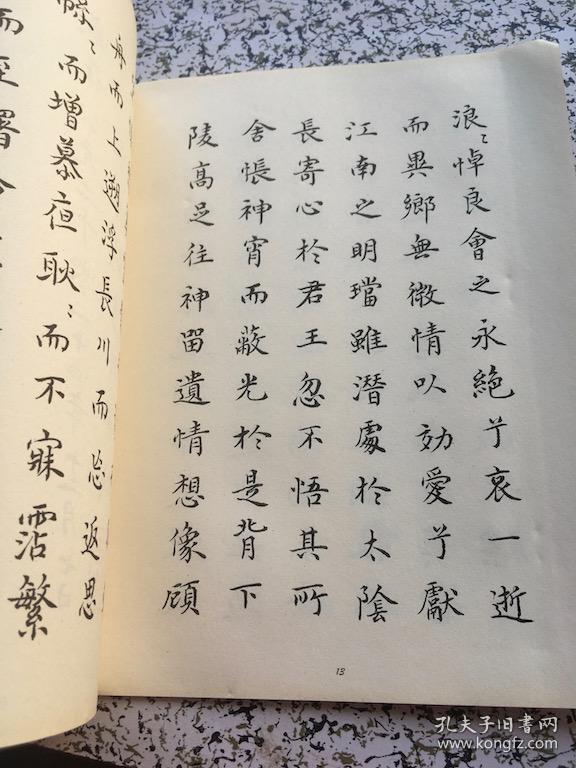 浪〻悼良會之永絕兮哀一逝
而異鄉無微情以効愛兮獻
江南之明璫雖潛處於太陰
長寄心於君王忽不悟其所
舍悵神宵而蔽光於是背下
陵高足往神留遺情想像顧
13
舟而上遡浮長川而忘返思
〻而增慕夜耿〻而不寐霑繁
而至
孔夫子旧书网
www.kongfz.com